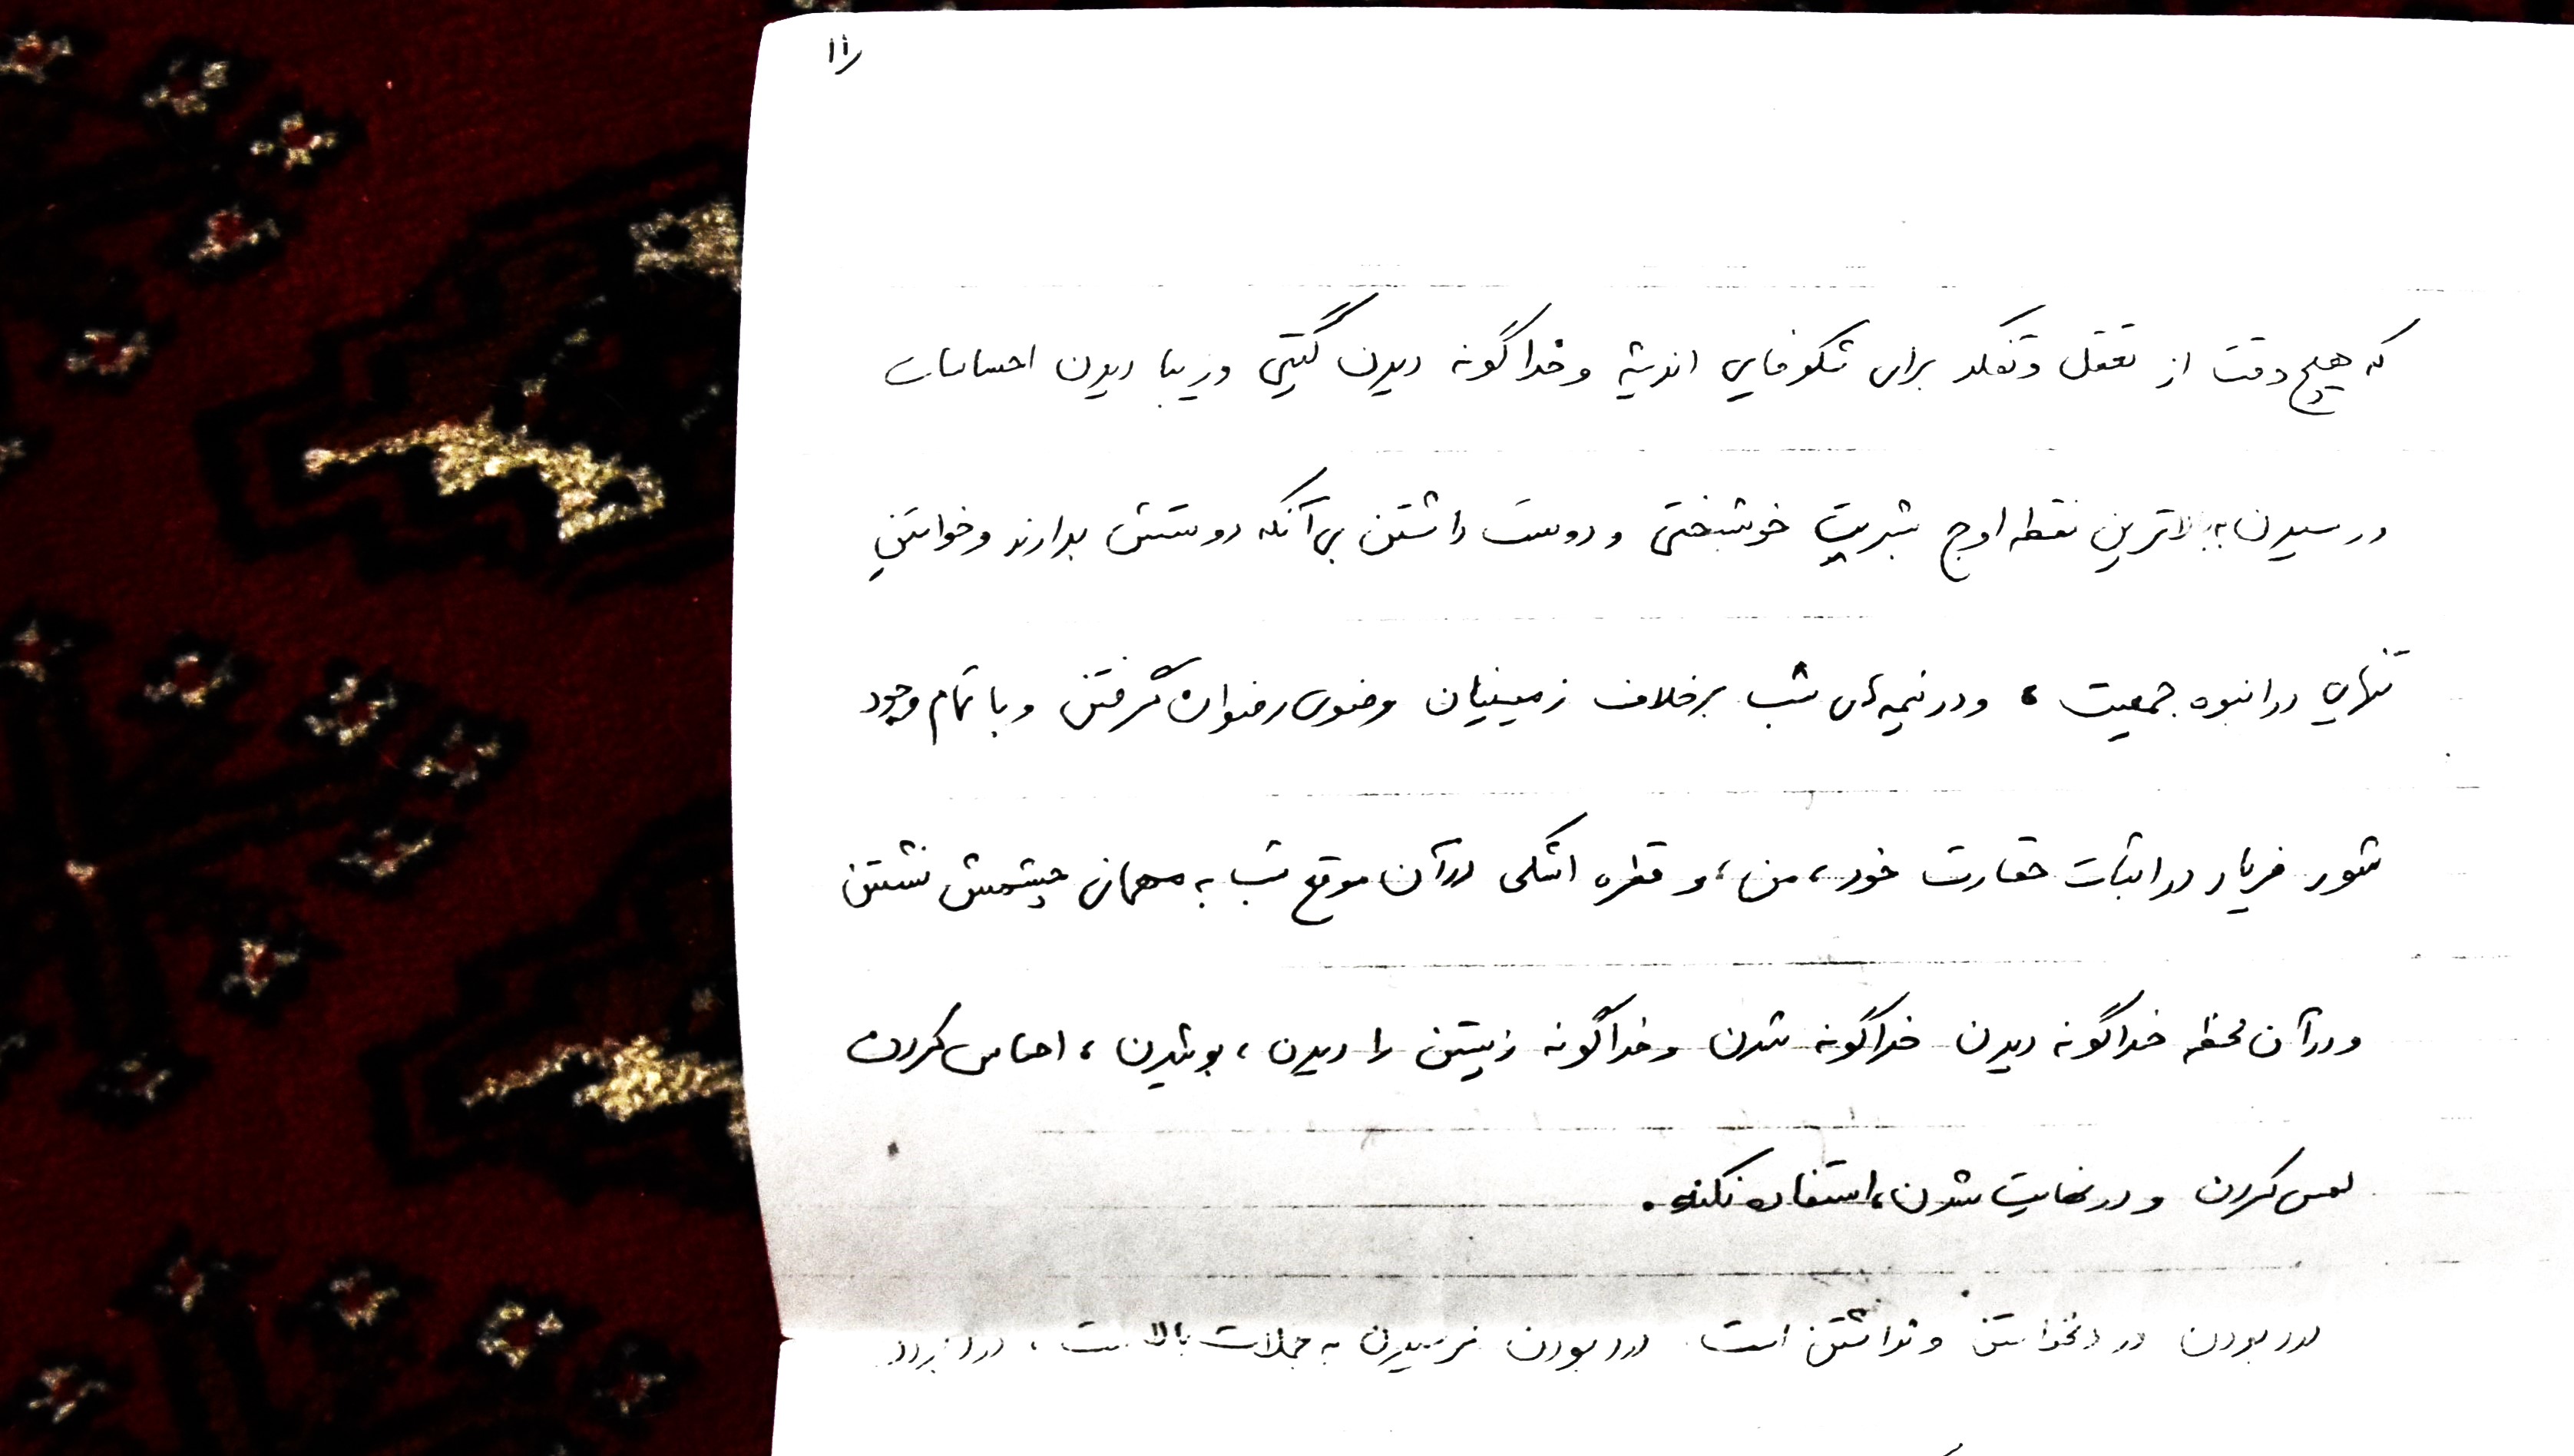 ۱۱
که هیچ وقت از تعقل و تفکر برای شکوفایی اندیشه و خداگونه دیدن گیتی و زیبا دیدن احساسات
در رسیدن به بالاترین نقطه اوج بشریت خوشبختی و دوست داشتن بی آنکه دوستش بدارند و خواستن
تنهایی در انبوه جمعیت ، و در نیمه های شب برخلاف زمینیان وضوی رضوان گرفتن و با تمام وجود
شور فریاد در اثبات حقارت خود ، من ، و قطره اشکی در آن موقع شب به مهمانی چشمش نشستن
و در آن لحظه خداگونه دیدن خداگونه شدن و خداگونه زیستن را دیدن ، بوئیدن ، احساس کردن
لمس کردن و در نهایت شدن ، استفاده نکند .
درد بودن در نخواستن و نداشتن است درد بودن نرسیدن به جملات بالاست ،